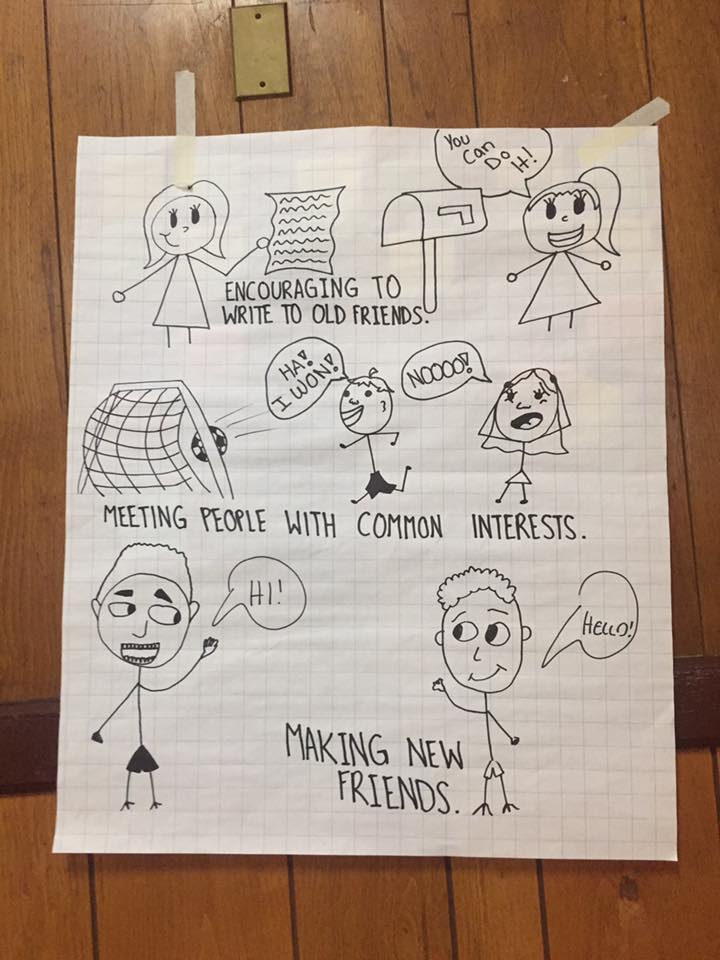 You
Can
Do
It!
ENCOURAGING TO
WRITE TO OLD FRIENDS.
HA!
I WON!
NOOOO!
MEETING PEOPLE WITH COMMON INTERESTS.
HI!
HELLO!
MAKING NEW
FRIENDS.